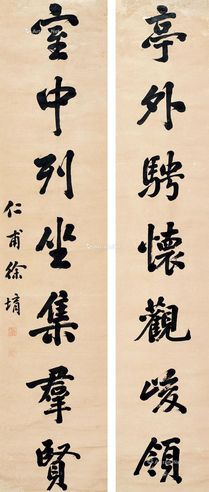 亭外騁懷觀峻領
室中列坐集羣賢
仁甫徐堉